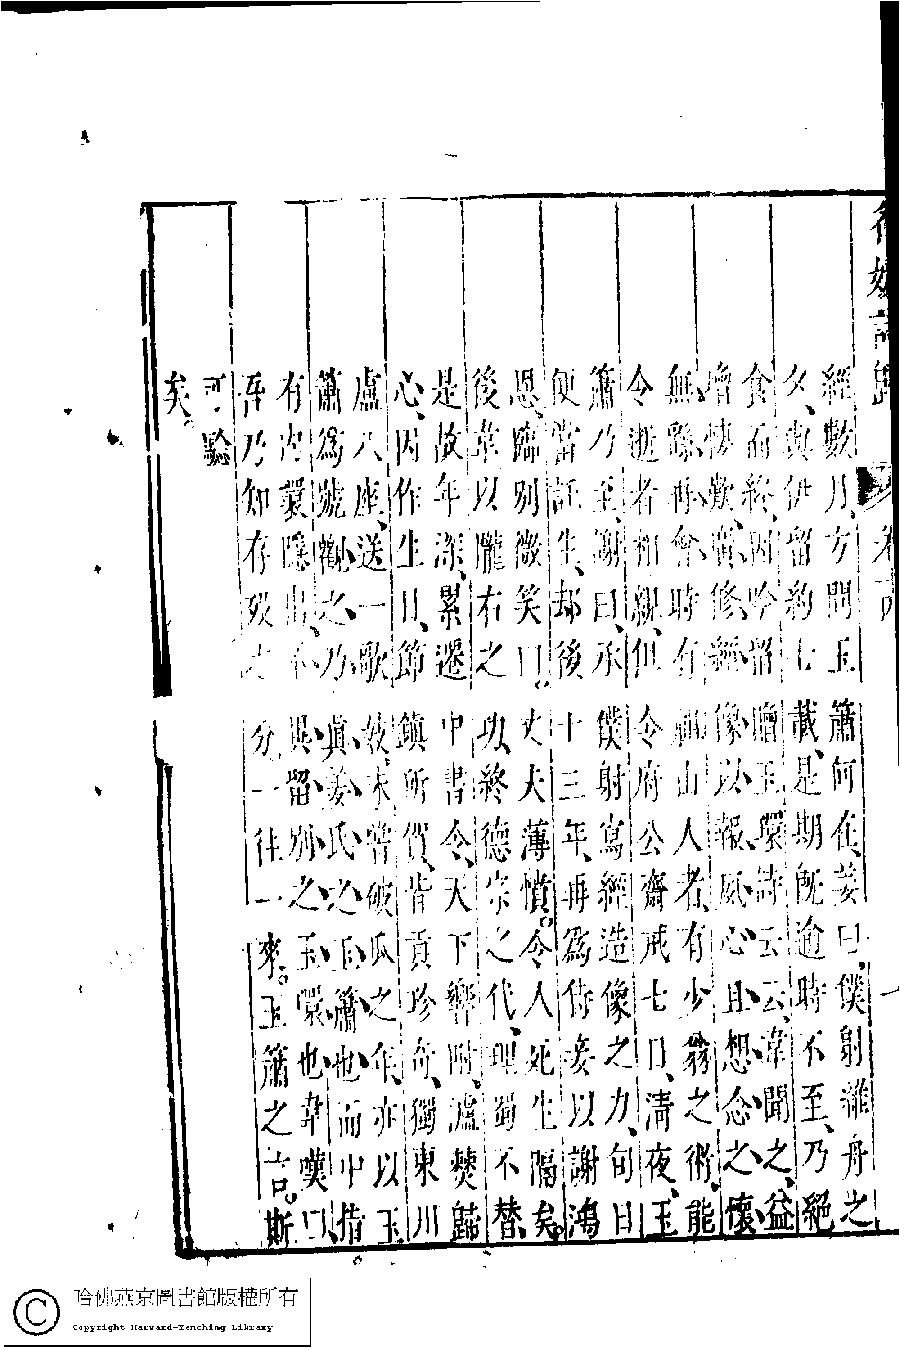 名媛詩歸 卷十四
經數月、方問玉簫何在、姜曰、僕射維舟之
夕、與伊留約七載、是期旣逾時不至、乃絕
食而終、因吟留贈玉環詩云云、韋聞之、益
增悽歎、廣修經像、以報夙心、且想念之懷、
無繇再會、時有祖山人者、有少翁之術、能
令逝者相親、但令府公齋戒七日、清夜、玉
簫乃至、謝曰、承僕射寫經造像之力、旬日
便當託生、却後十三年、再爲侍妾、以謝鴻
恩、臨別微笑曰。丈夫薄情。令人死生隔矣。
後韋以隴右之功、終德宗之代、理蜀不替、
是故年深、累遷中書令、天下響附、瀘僰歸
心、因作生日、節鎮所賀、皆貢珍奇、獨東川
盧八座、送一歌妓、未嘗破瓜之年、亦以玉
簫爲號、觀之、乃眞姜氏之玉簫也、而中指
有肉環隱出、不異留別之玉環也、韋嘆曰、
吾乃知存歿之分一往一來。玉簫之言。斯
可驗
矣。
哈佛燕京圖書館版權所有
Copyright Harvard-Yenching Library